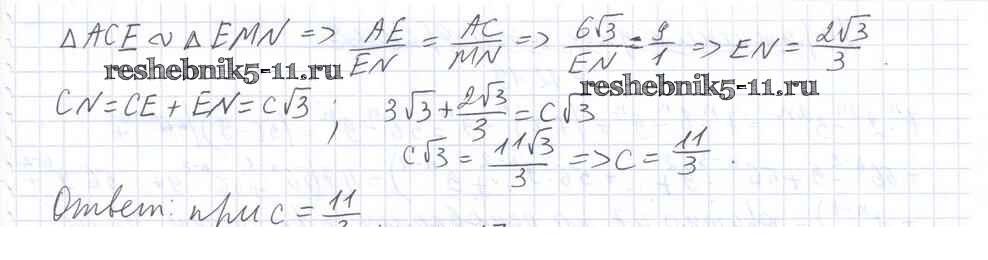 △ACE ~ △EMN => AE/EN = AC/MN => 6√3/EN = 9/1 => EN = 2√3/3.
reshebnik5-11.ru
reshebnik5-11.ru
CN = CE + EN = C√3; 3√3 + 2√3/3 = C√3
C√3 = 11√3/3 => C = 11/3.
Ответ: при C = 11/3